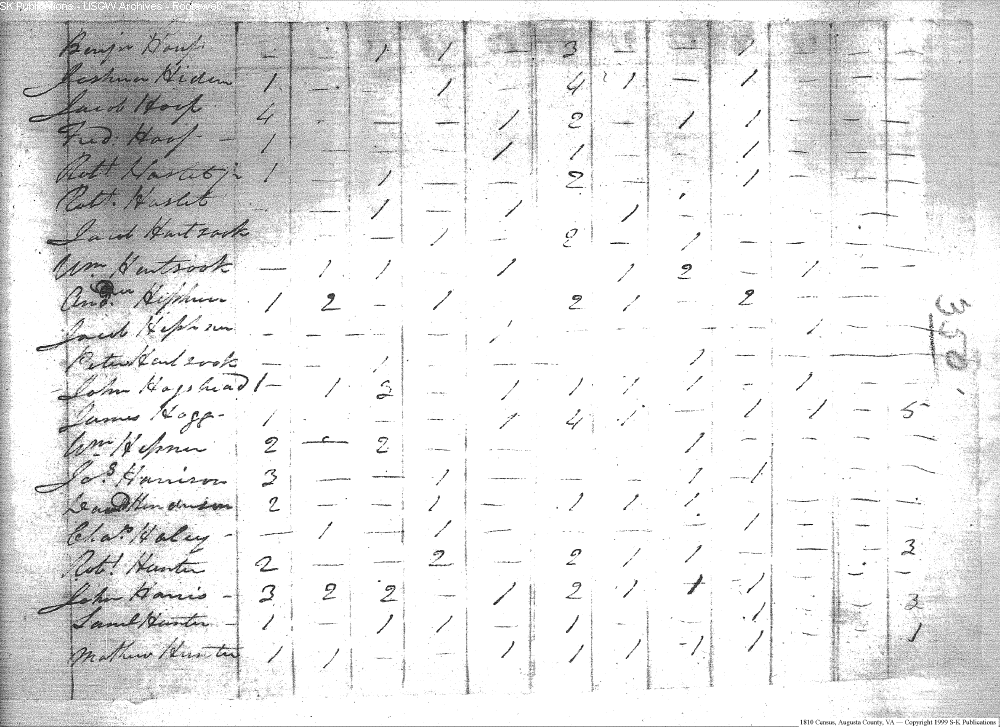 SK Publications - USGW Archives - Rootsweb
Benjn - - 1 1 - 3 - - 1 - - -
Joshua Hiden 1 - - 1 - 4 1 - 1 - - -
Jacob Hoof 4 - - - 1 2 - 1 1 - - -
Fred. Hoof - 1 - - - 1 1 - - 1 - - -
Robt Haslet jr 1 - 1 - - 2 - - 1 - - -
Robt. Haslet - - 1 - 1 - 1 - - - -
Jacob Hartsook - - - 1 - 2 - 1 - - - -
Wm Hartsook - 1 1 - 1 - 1 2 - 1 - -
Andw Hephner 1 2 - 1 - 2 1 - 2 - - -
Jacob Hephner - - - - 1 - - - - 1 - -
Peter Hartsook - - 1 - - - - 1 - - - -
John Hogshead 1 - 1 2 - 1 1 1 1 - 1 - -
James Hogg - 1 - - - 1 4 1 - 1 1 - 5
Wm Hepner 2 - 2 - - - - 1 - - - -
Jos Harrison 3 - - 1 - - - 1 1 - - -
David Henderson 2 - - 1 - 1 1 1 - - - -
Chas Haley - - 1 - 1 - - - - 1 - - 3
Robt Hunter 2 - - 2 - 2 1 1 - - - -
John Harris - 3 2 2 - 1 2 1 1 1 - - 3
Saml Hunter - 1 - 1 1 - 1 - - 1 - - 1
Mathew Hunter 1 1 - - 1 1 1 1 1 - - -
350
1810 Census, Augusta County, VA — Copyright 1999 S-K Publications